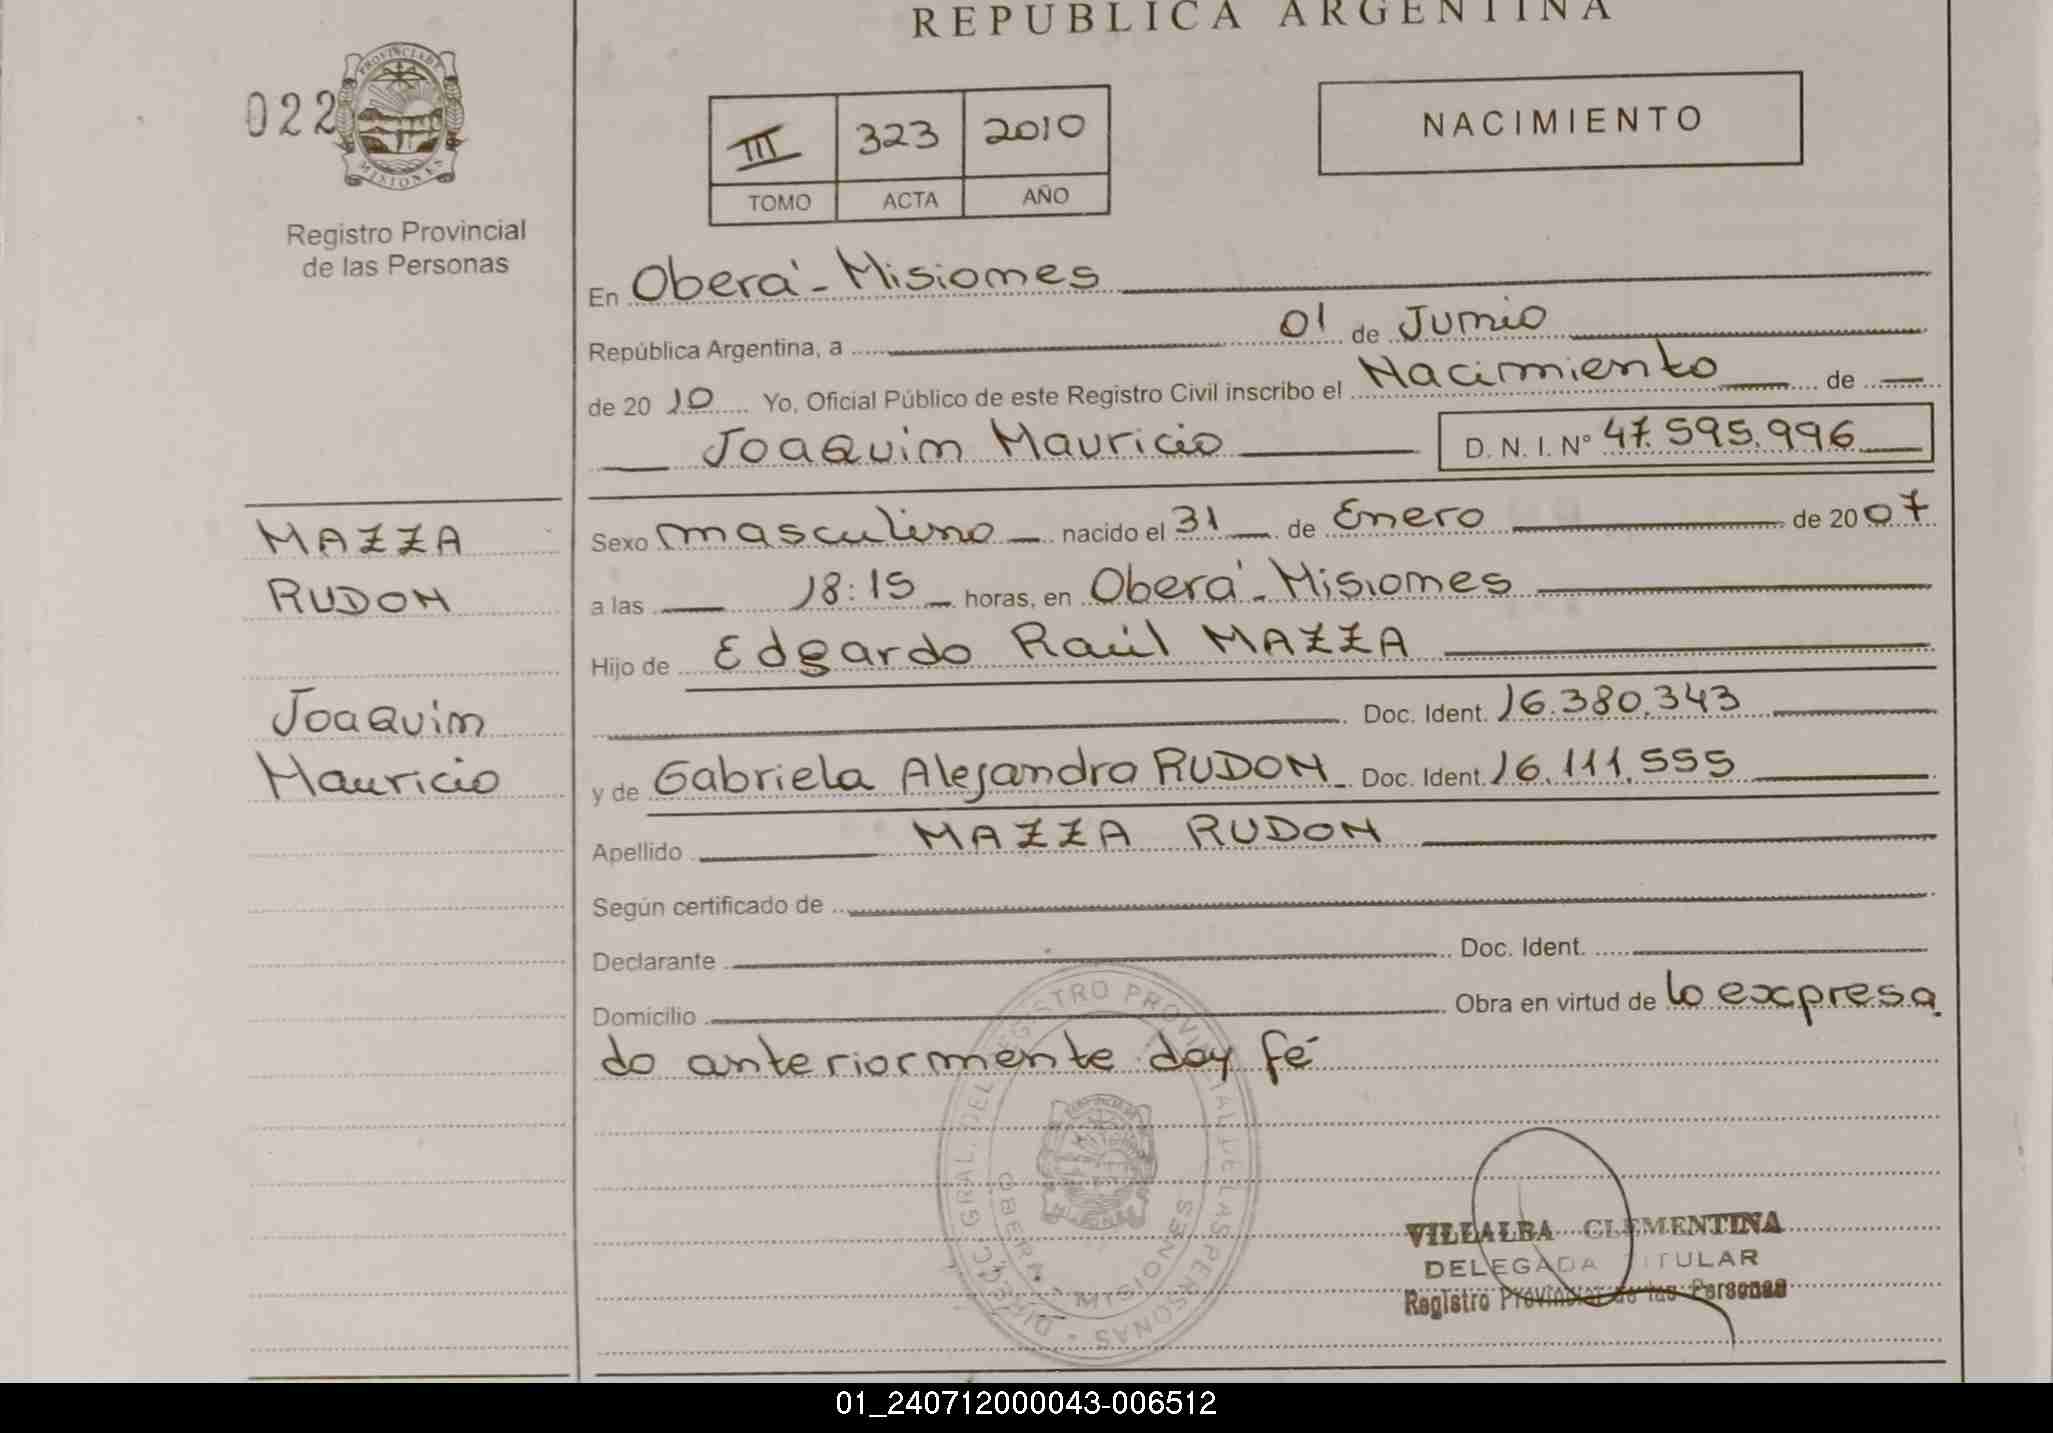 REPUBLICA ARGENTINA
022
PROVINCIA DE
MISIONES
Registro Provincial
de las Personas
III 323 2010
TOMO ACTA AÑO
NACIMIENTO
En Oberá - Misiones
República Argentina, a 01 de Junio
de 2010 Yo, Oficial Público de este Registro Civil inscribo el Nacimiento de
Joaquin Mauricio D. N. I. Nº 47.595.996
MAZZA
RUDON
Joaquin
Mauricio
Sexo masculino nacido el 31 de Enero de 2007
a las 18:15 horas, en Oberá - Misiones
Hijo de Edgardo Raúl MAZZA
Doc. Ident. 16.380.343
y de Gabriela Alejandra RUDON Doc. Ident. 16.111.555
Apellido MAZZA RUDON
Según certificado de
Declarante Doc. Ident.
Domicilio Obra en virtud de lo expresa
do anteriormente doy fé
DIRECC. GRAL. DEL REGISTRO PROVINCIAL DE LAS PERSONAS
OBERA - MISIONES
VILLALBA CLEMENTINA
DELEGADA TITULAR
Registro Provincial de las Personas
01_240712000043-006512